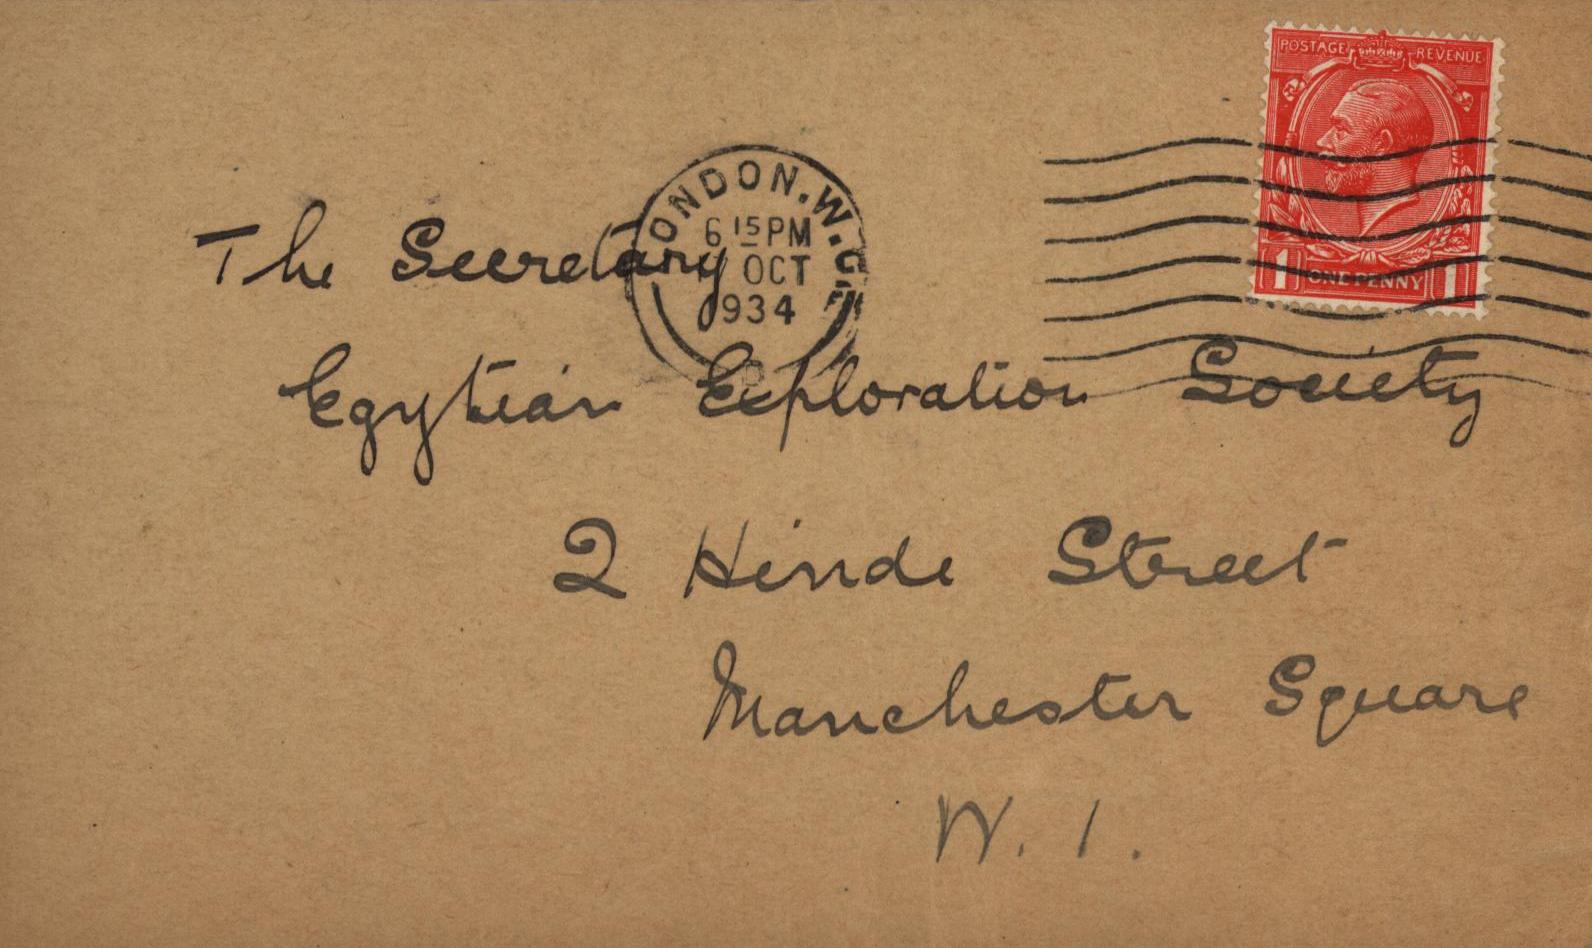 POSTAGE REVENUE
LONDON.W.C.
6 15 PM
OCT
1934
1 ONE PENNY 1
The Secretary
Egytian Exploration Society
2 Hinde Street
Manchester Square
W. 1.